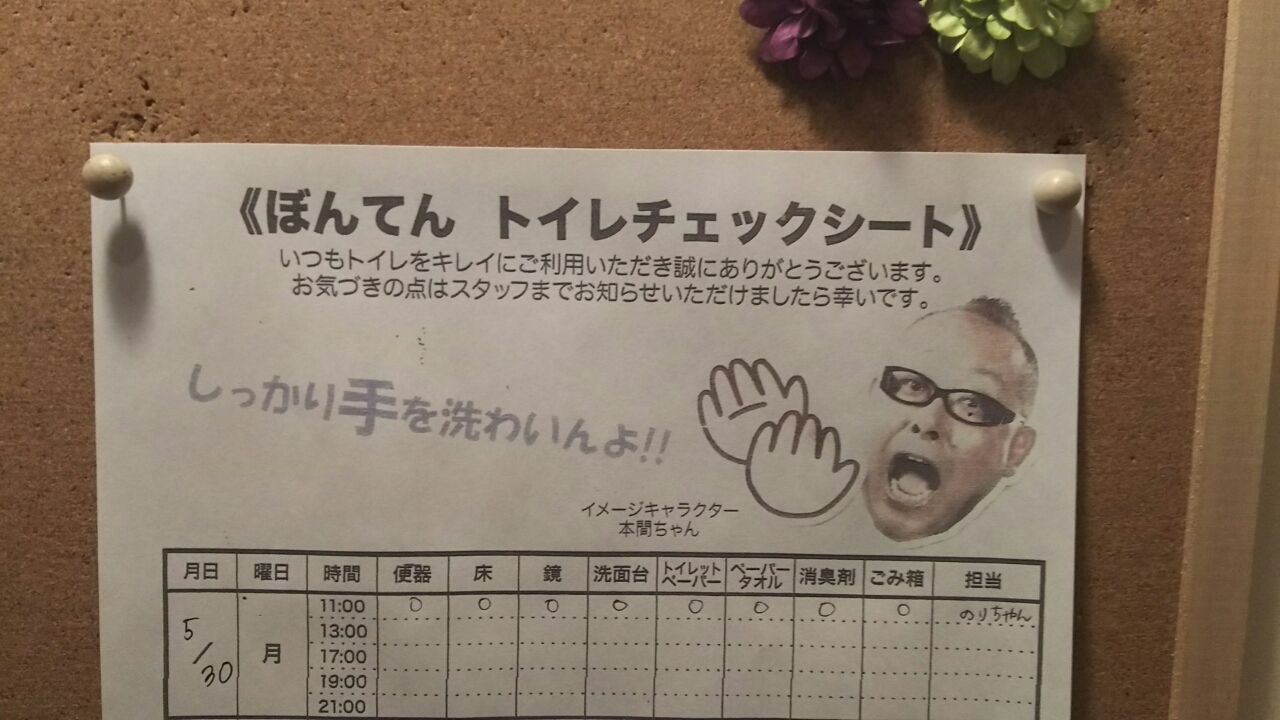 《ぼんてん トイレチェックシート》
いつもトイレをキレイにご利用いただき誠にありがとうございます。
お気づきの点はスタッフまでお知らせいただけましたら幸いです。
しっかり手を洗わいんよ!!
イメージキャラクター
本間ちゃん
月日 曜日 時間 便器 床 鏡 洗面台 トイレットペーパー ペーパータオル 消臭剤 ごみ箱 担当
5/30 月 11:00 ○ ○ ○ ○ ○ ○ ○ ○ のりちゃん
13:00
17:00
19:00
21:00